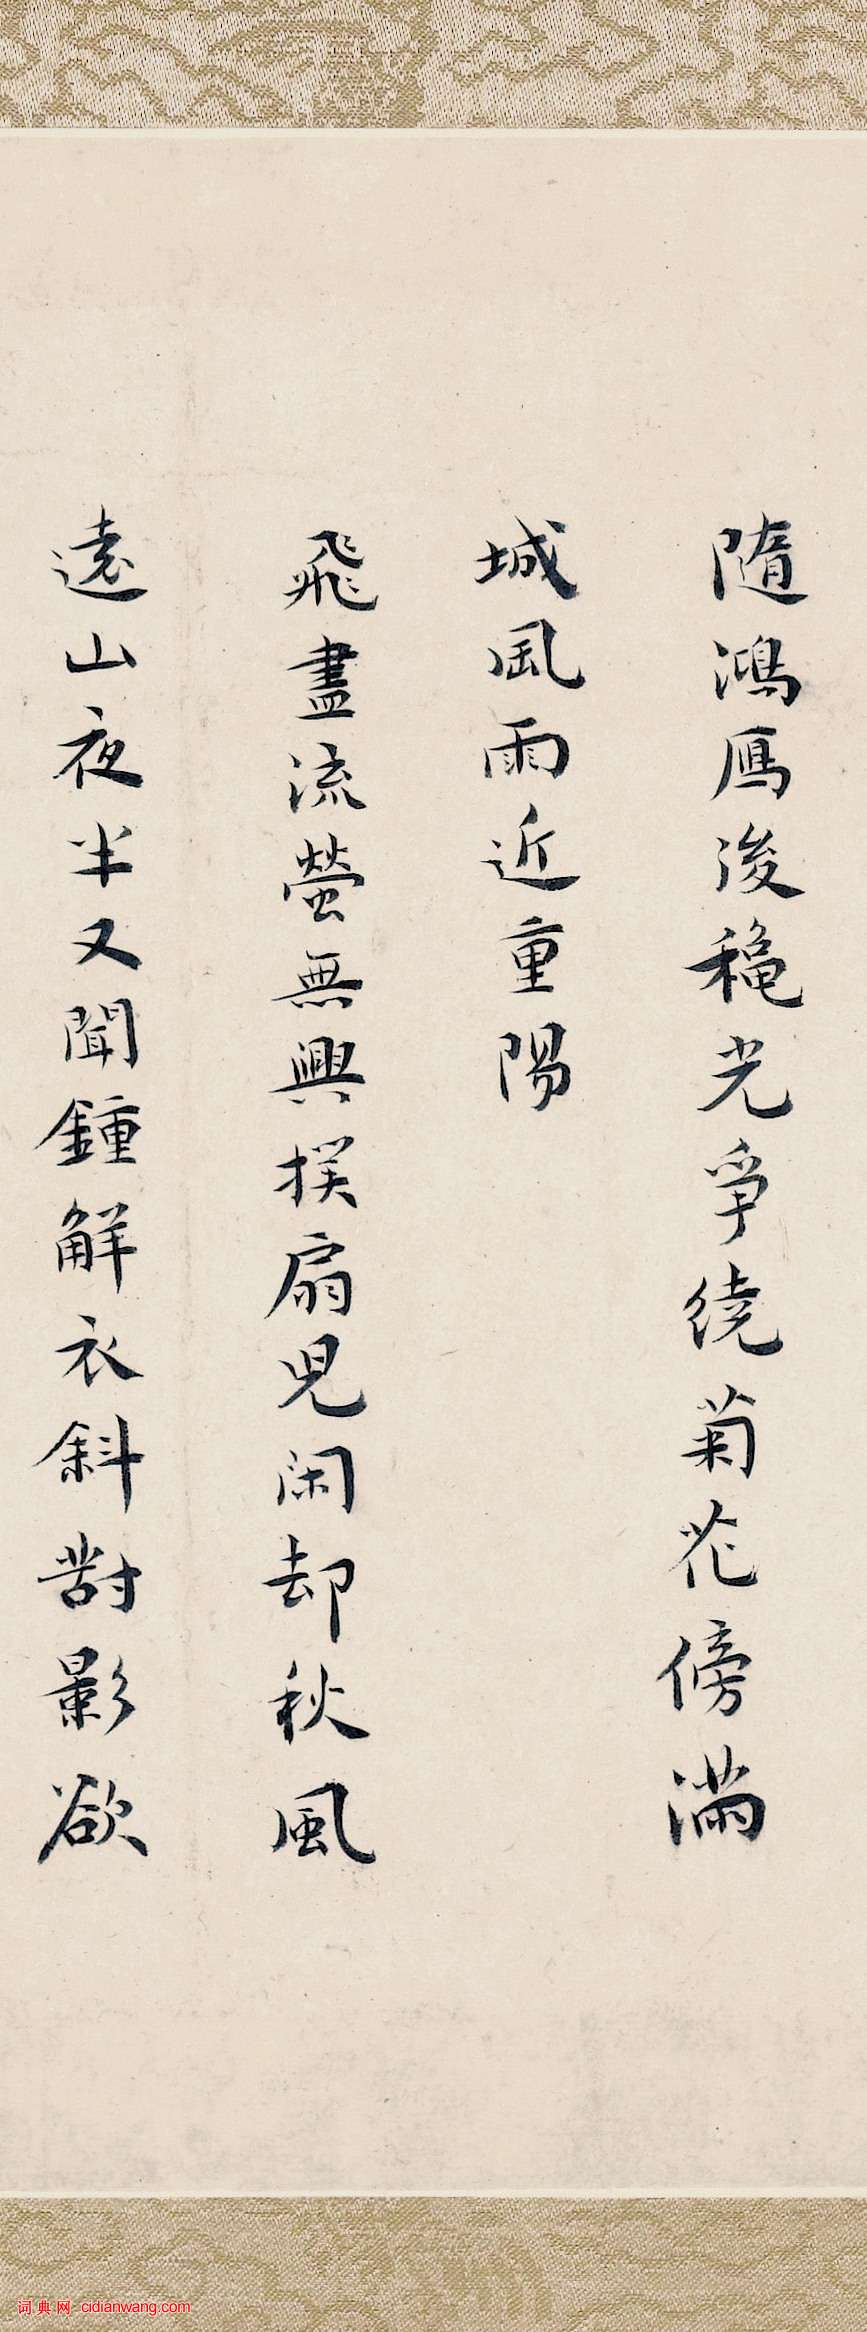 隨鴻鴈後龝光爭繞菊花傍滿
城風雨近重陽
飛盡流螢無興撲扇兒閑却秋風
遠山夜半又聞鍾解衣斜對影欲
词典网 cidianwang.com